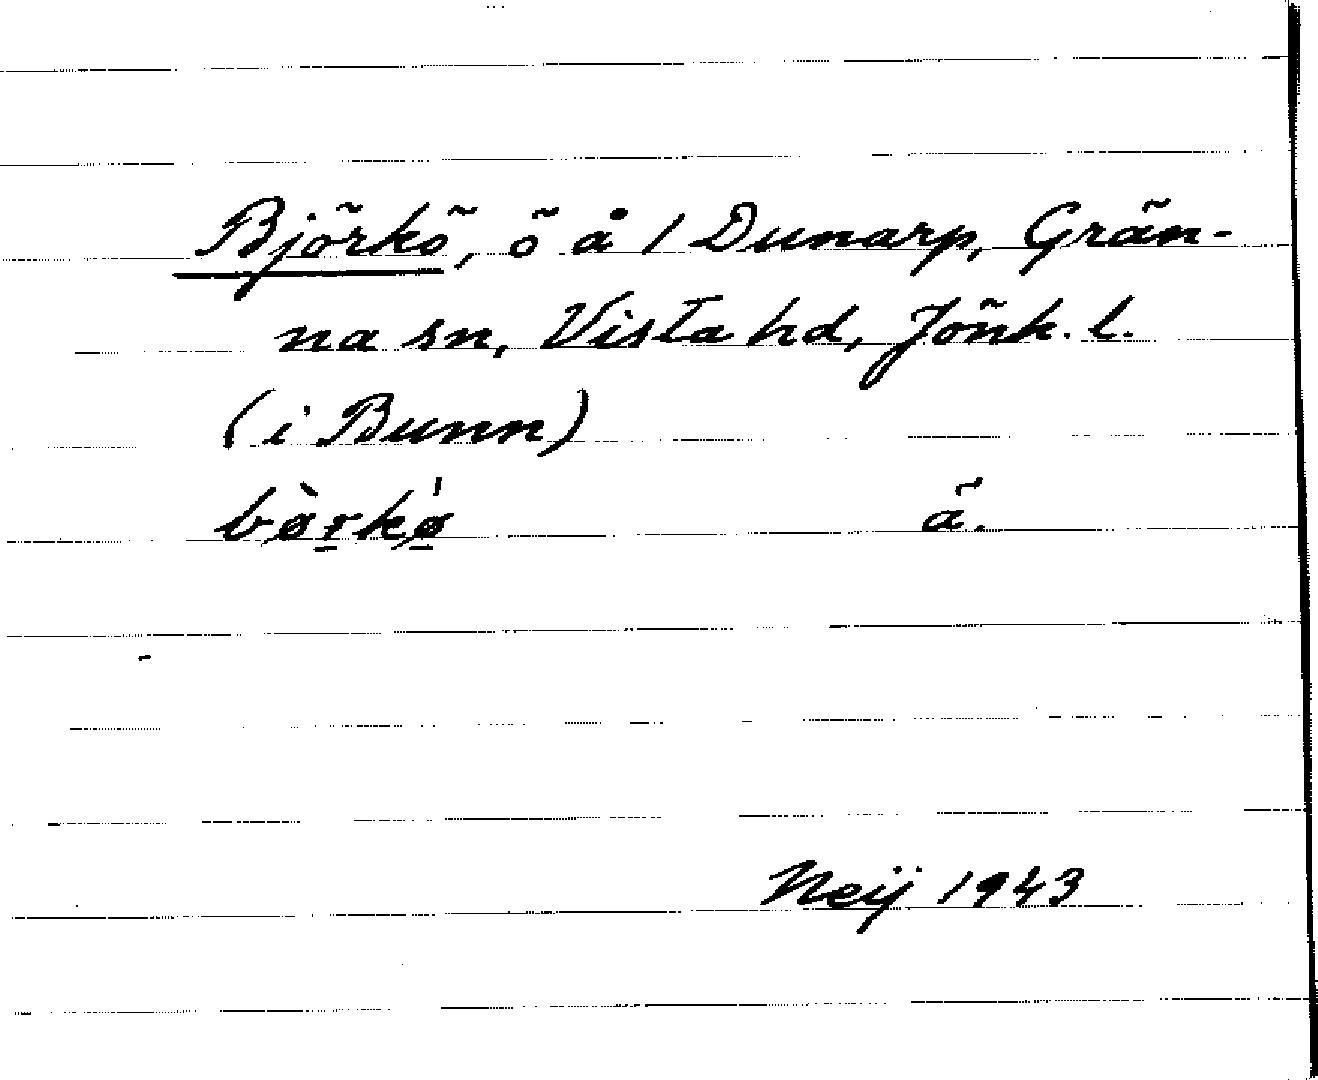 Björkö, ö å 1 Dunarp, Grän-
na sn, Vista hd, Jönk. l.
(i Bunn)
bø̀rkø̍ ä.
Neij 1943